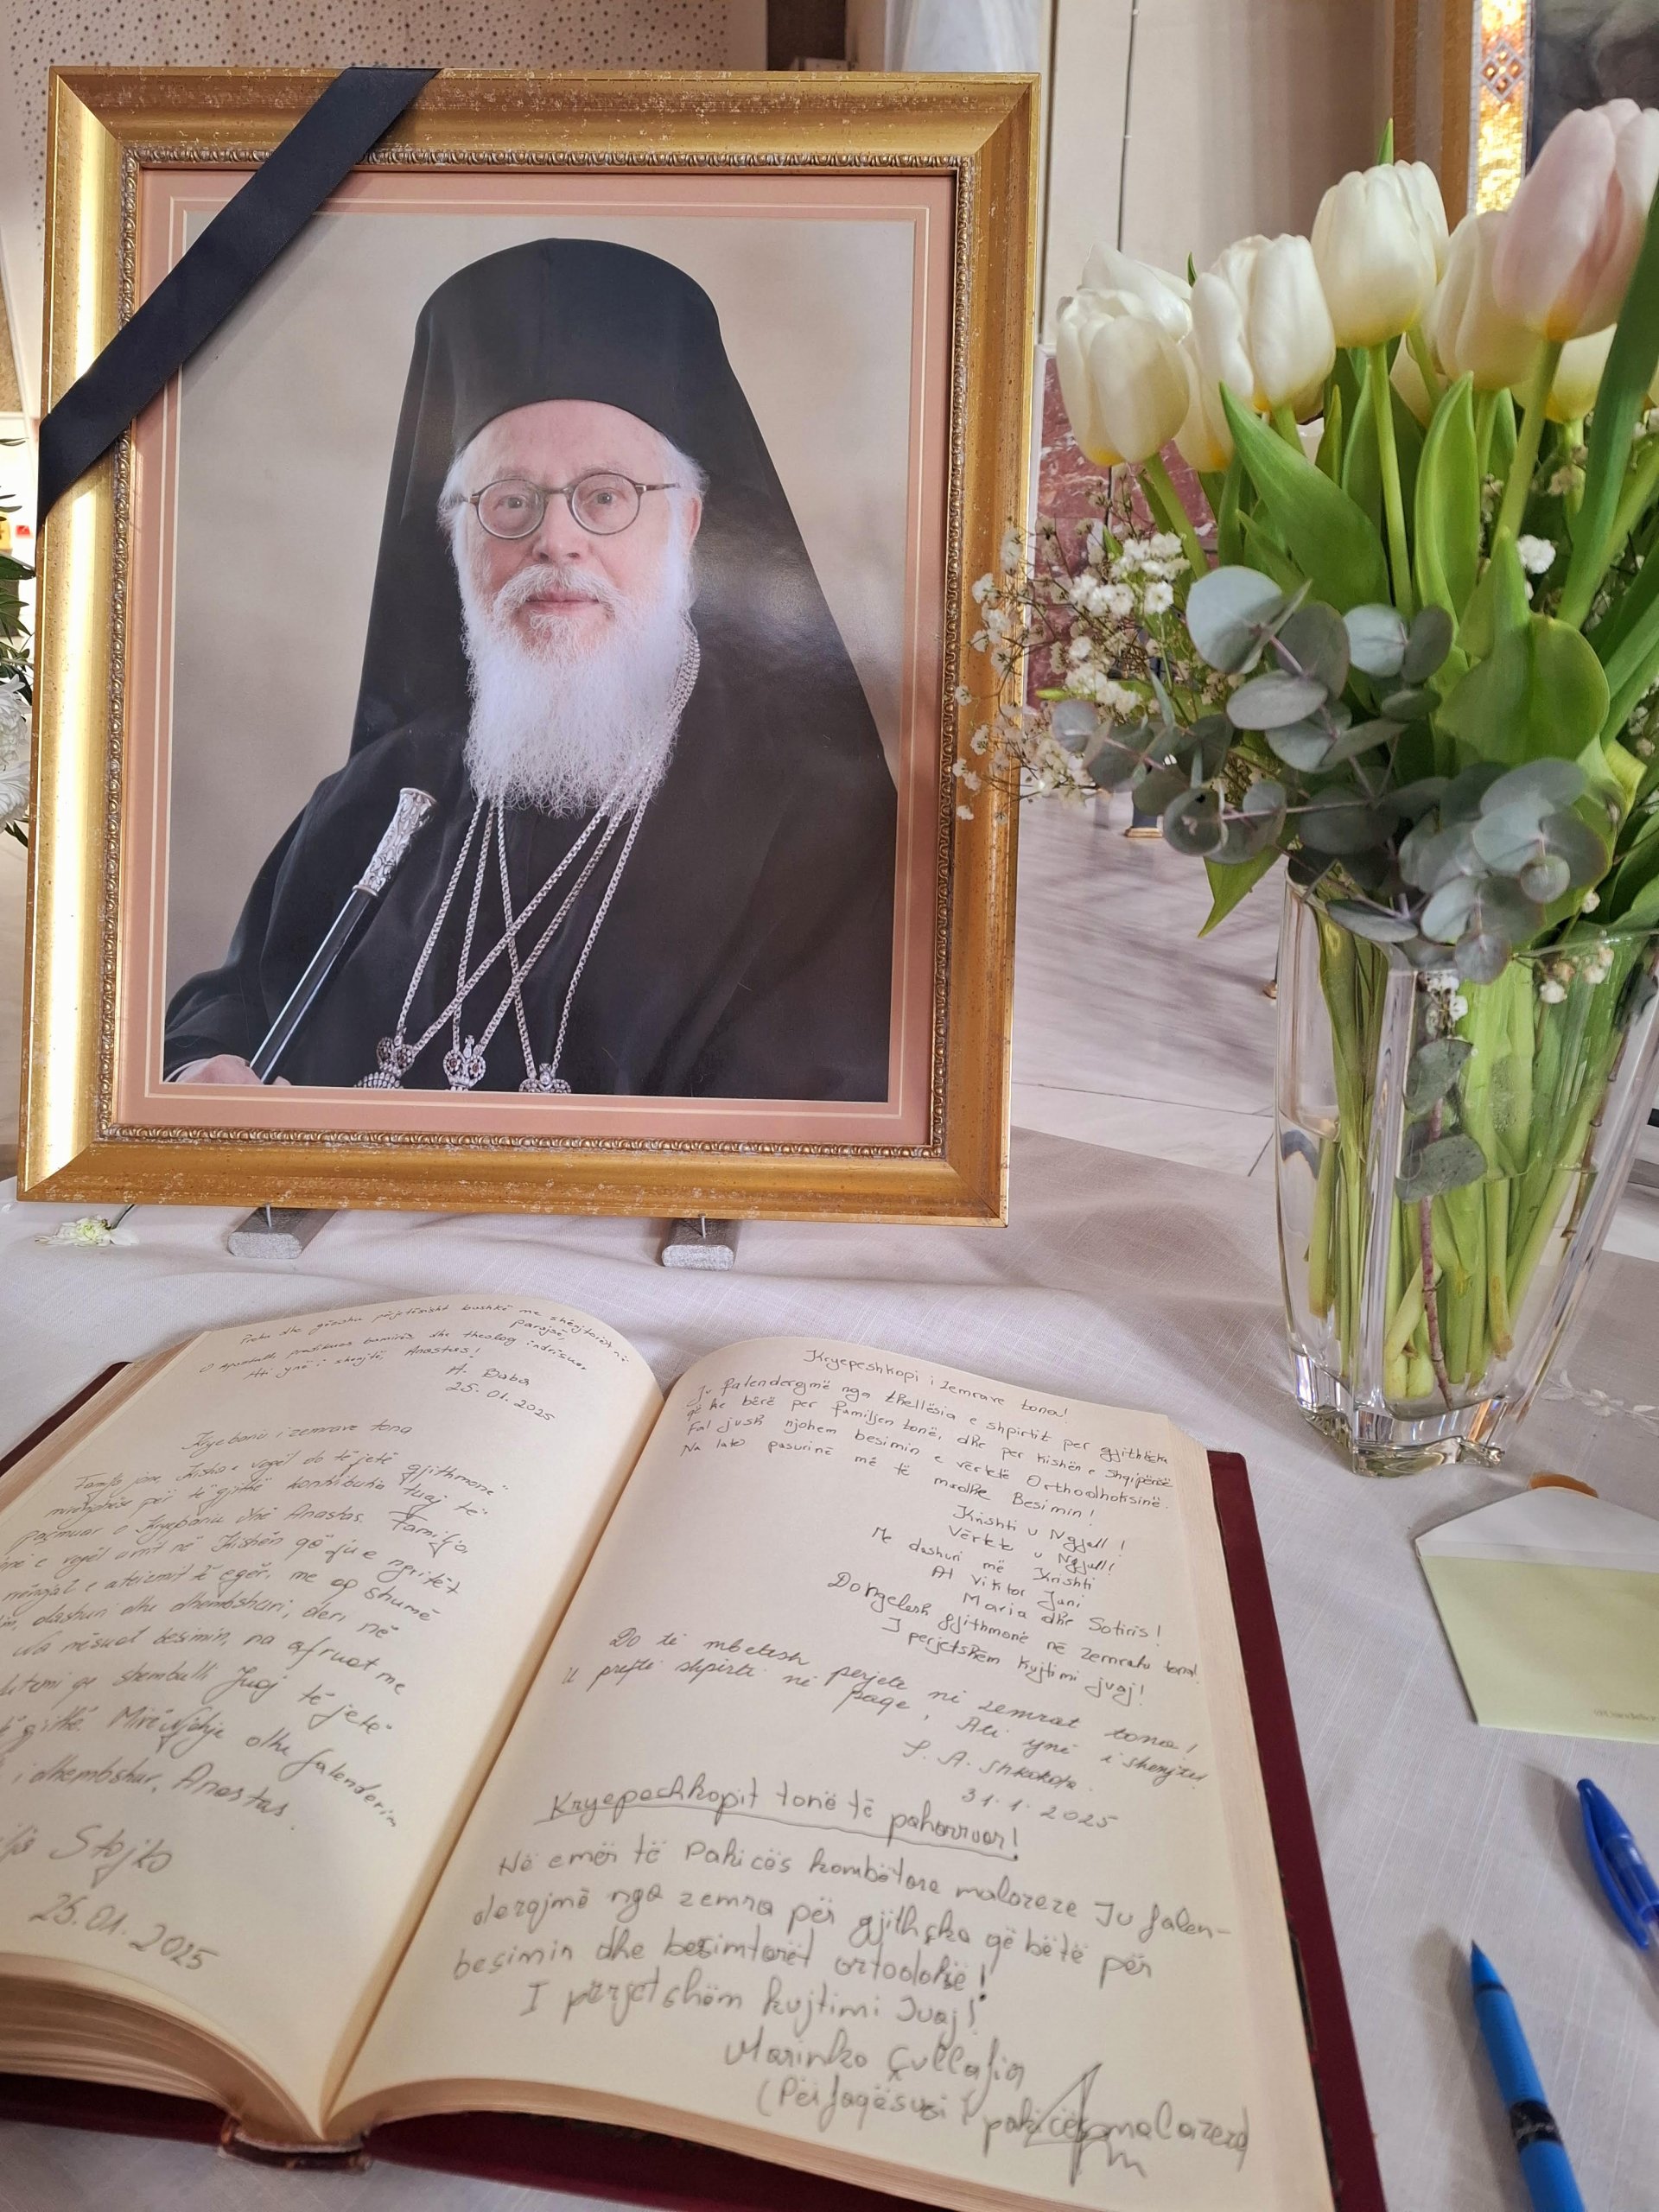 Prehu dhe gëzohu përjetësisht bashkë me shënjtorët në
Parajsë,
O Apostull, bamirës dhe theolog
Ati ynë i shenjtë, Anastas!
A. Baba
25.01.2025
Kryebariu i zemrave tona
Familja jone, Kisha e vogël do të jetë gjithmonë
mirënjohëse për të gjithë kontributin tuaj të
paçmuar o Kryebariu dhe Anastas. Familja
e vogël u rrit në Kishën që ju e ngritët
e ateizmit të egër, me aq shumë
dashuri dhe dhembshuri, deri në
Na mësuat besimin, na afruat me
qe shembulli Juaj të jetë
gjithë. Mirënjohje dhe falenderim
i dhembshur, Anastas.
Stojko
25.01.2025
Kryepeshkopi i zemrave tona!
Ju falenderojmë nga thellësia e shpirtit per gjithçka
që ke bërë per familjen tonë, dhe per Kishën e Shqipërisë
Fal jush njohem besimin e vërtetë Orthodhoksinë.
Na late pasurinë më të
madhe Besimin!
Krishti u Ngjall!
Vërtet u Ngjall!
Me dashuri në Krishti
At Viktor Jani
Maria dhe Sotiris!
Do ngelesh gjithmonë në zemrat tona!
I perjetshëm kujtimi juaj!
Do të mbetesh perjete në zemrat tona!
U prefte shpirti në paqe, Ati ynë i shenjtë!
S. A. Shkokota.
31.1.2025
Kryepeshkopit tonë të paharruar!
Në emër të Pakicës kombëtare malazeze Ju falen-
derojmë nga zemra për gjithçka që bëtë për
besimin dhe besimtarët ortodoksë!
I përjetshëm kujtimi Juaj!
Marinko Çullafiq
(Përfaqësuesi i pakicës malazeze)